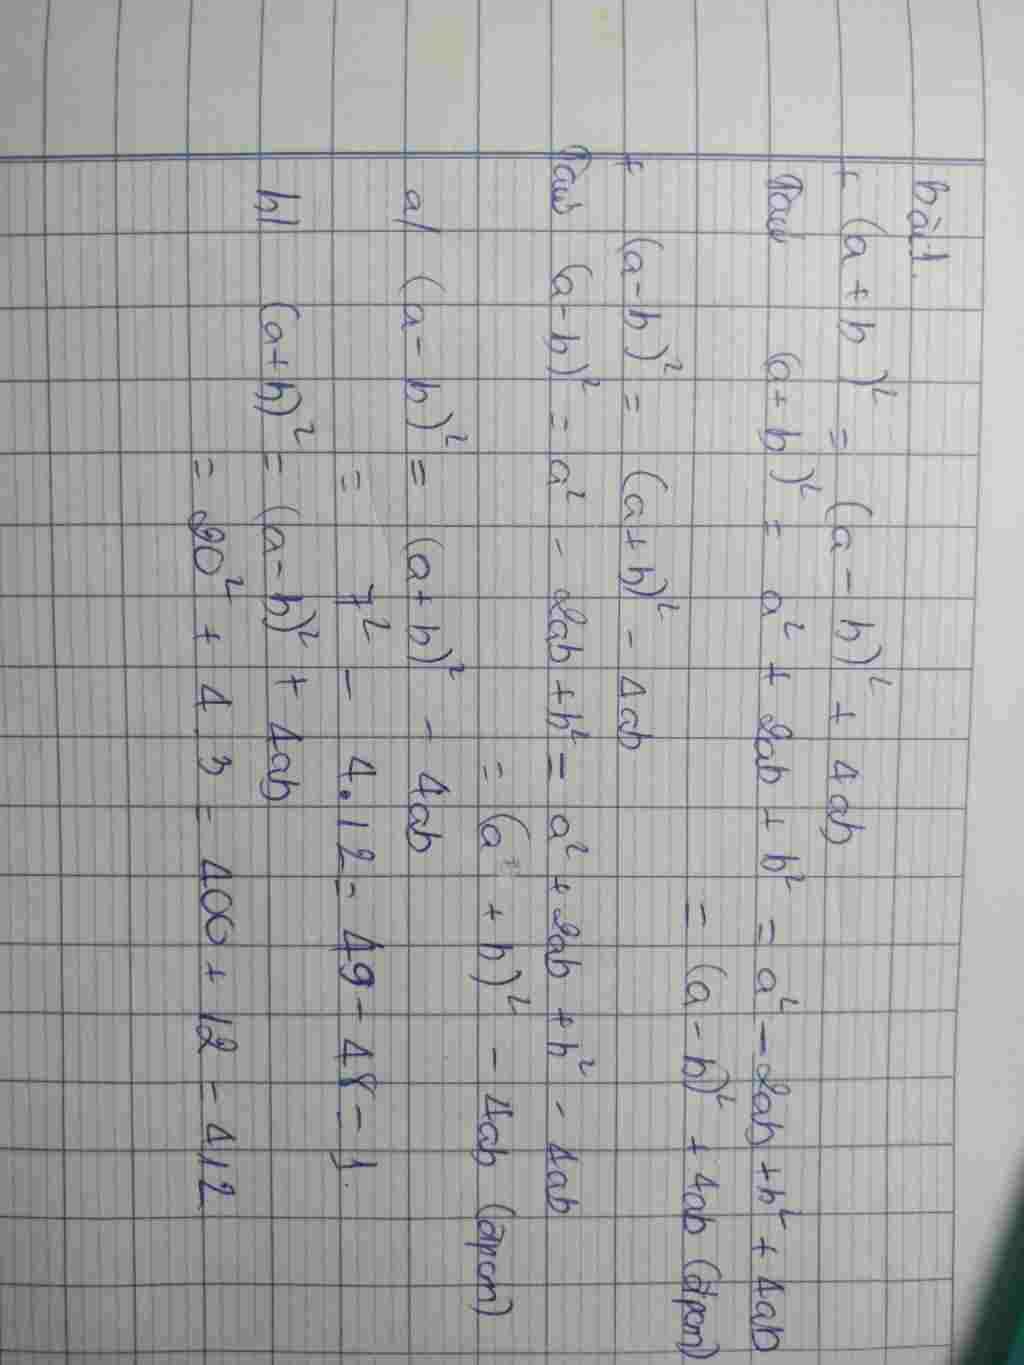 bài 1.
+ (a + b)² = (a - b)² + 4ab
Ta có (a + b)² = a² + 2ab + b² = a² - 2ab + b² + 4ab
= (a - b)² + 4ab (đpcm)
+ (a - b)² = (a + b)² - 4ab
Ta có (a - b)² = a² - 2ab + b² = a² + 2ab + b² - 4ab
= (a + b)² - 4ab (đpcm)
a/ (a - b)² = (a + b)² - 4ab
= 7² - 4.12 = 49 - 48 = 1.
b) (a + b)² = (a - b)² + 4ab
= 20² + 4.3 = 400 + 12 = 412